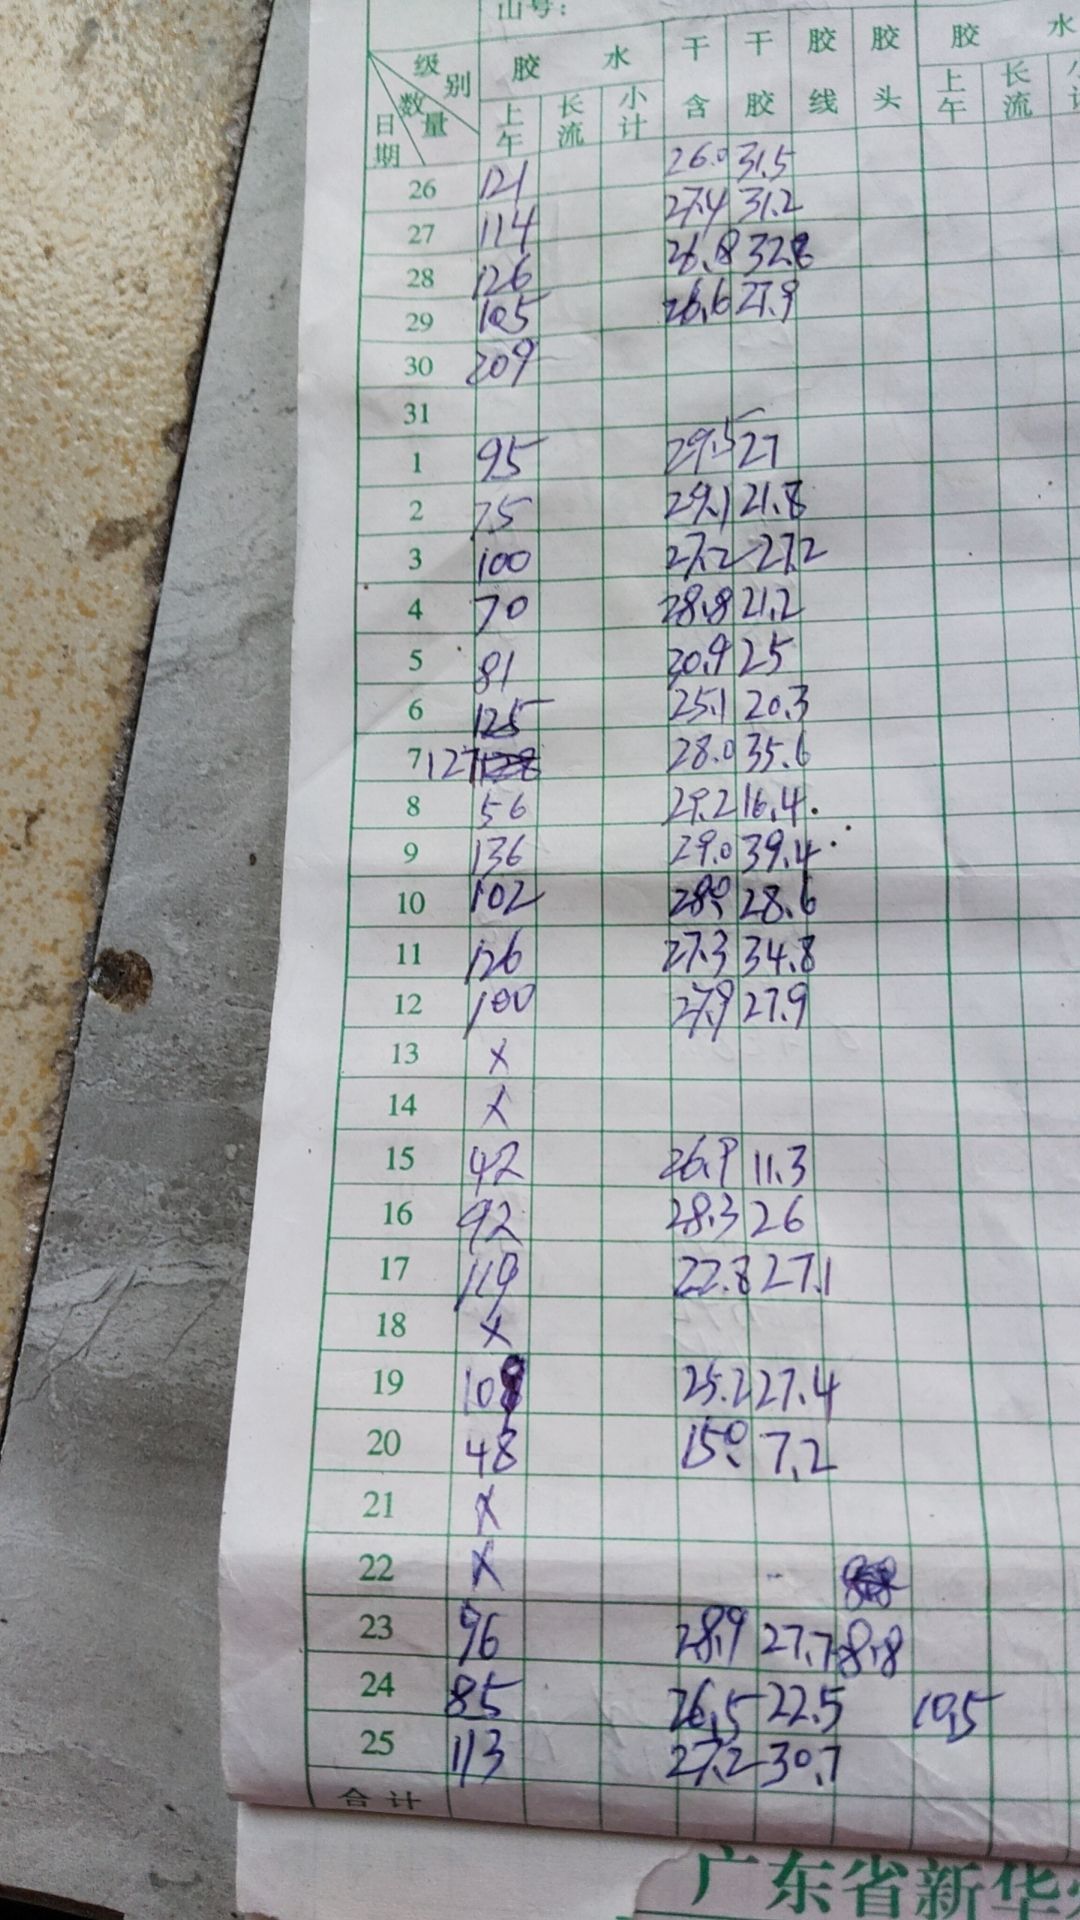 山号:
级别 数量 日期 胶水 干含 干胶 胶线 胶头 胶水
上午 长流 小计 上午 长流 小
26 121 26.0 31.5
27 114 27.4 31.2
28 126 26.8 32.8
29 105 26.6 27.9
30 209
31
1 95 29.5 27
2 75 29.1 21.8
3 100 27.2 27.2
4 70 28.8 21.2
5 81 30.9 25
6 125 25.1 20.3
7 127 28.0 35.6
8 56 29.2 16.4
9 136 29.0 39.4
10 102 28.0 28.6
11 126 27.3 34.8
12 100 27.9 27.9
13 x
14 x
15 42 26.9 11.3
16 92 28.3 26
17 119 22.8 27.1
18 x
19 109 25.2 27.4
20 48 15.0 7.2
21 x
22 x
23 96 28.9 27.7 8.8
24 85 26.5 22.5 10.5
25 113 27.2 30.7
合计
广东省新华